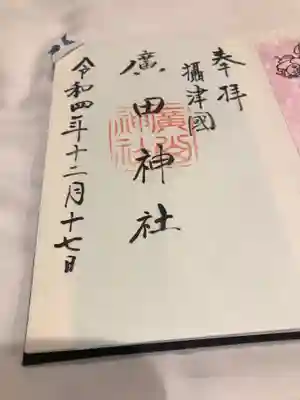 奉拝
攝津國
廣田神社
廣田
神社
令和四年十二月十七日